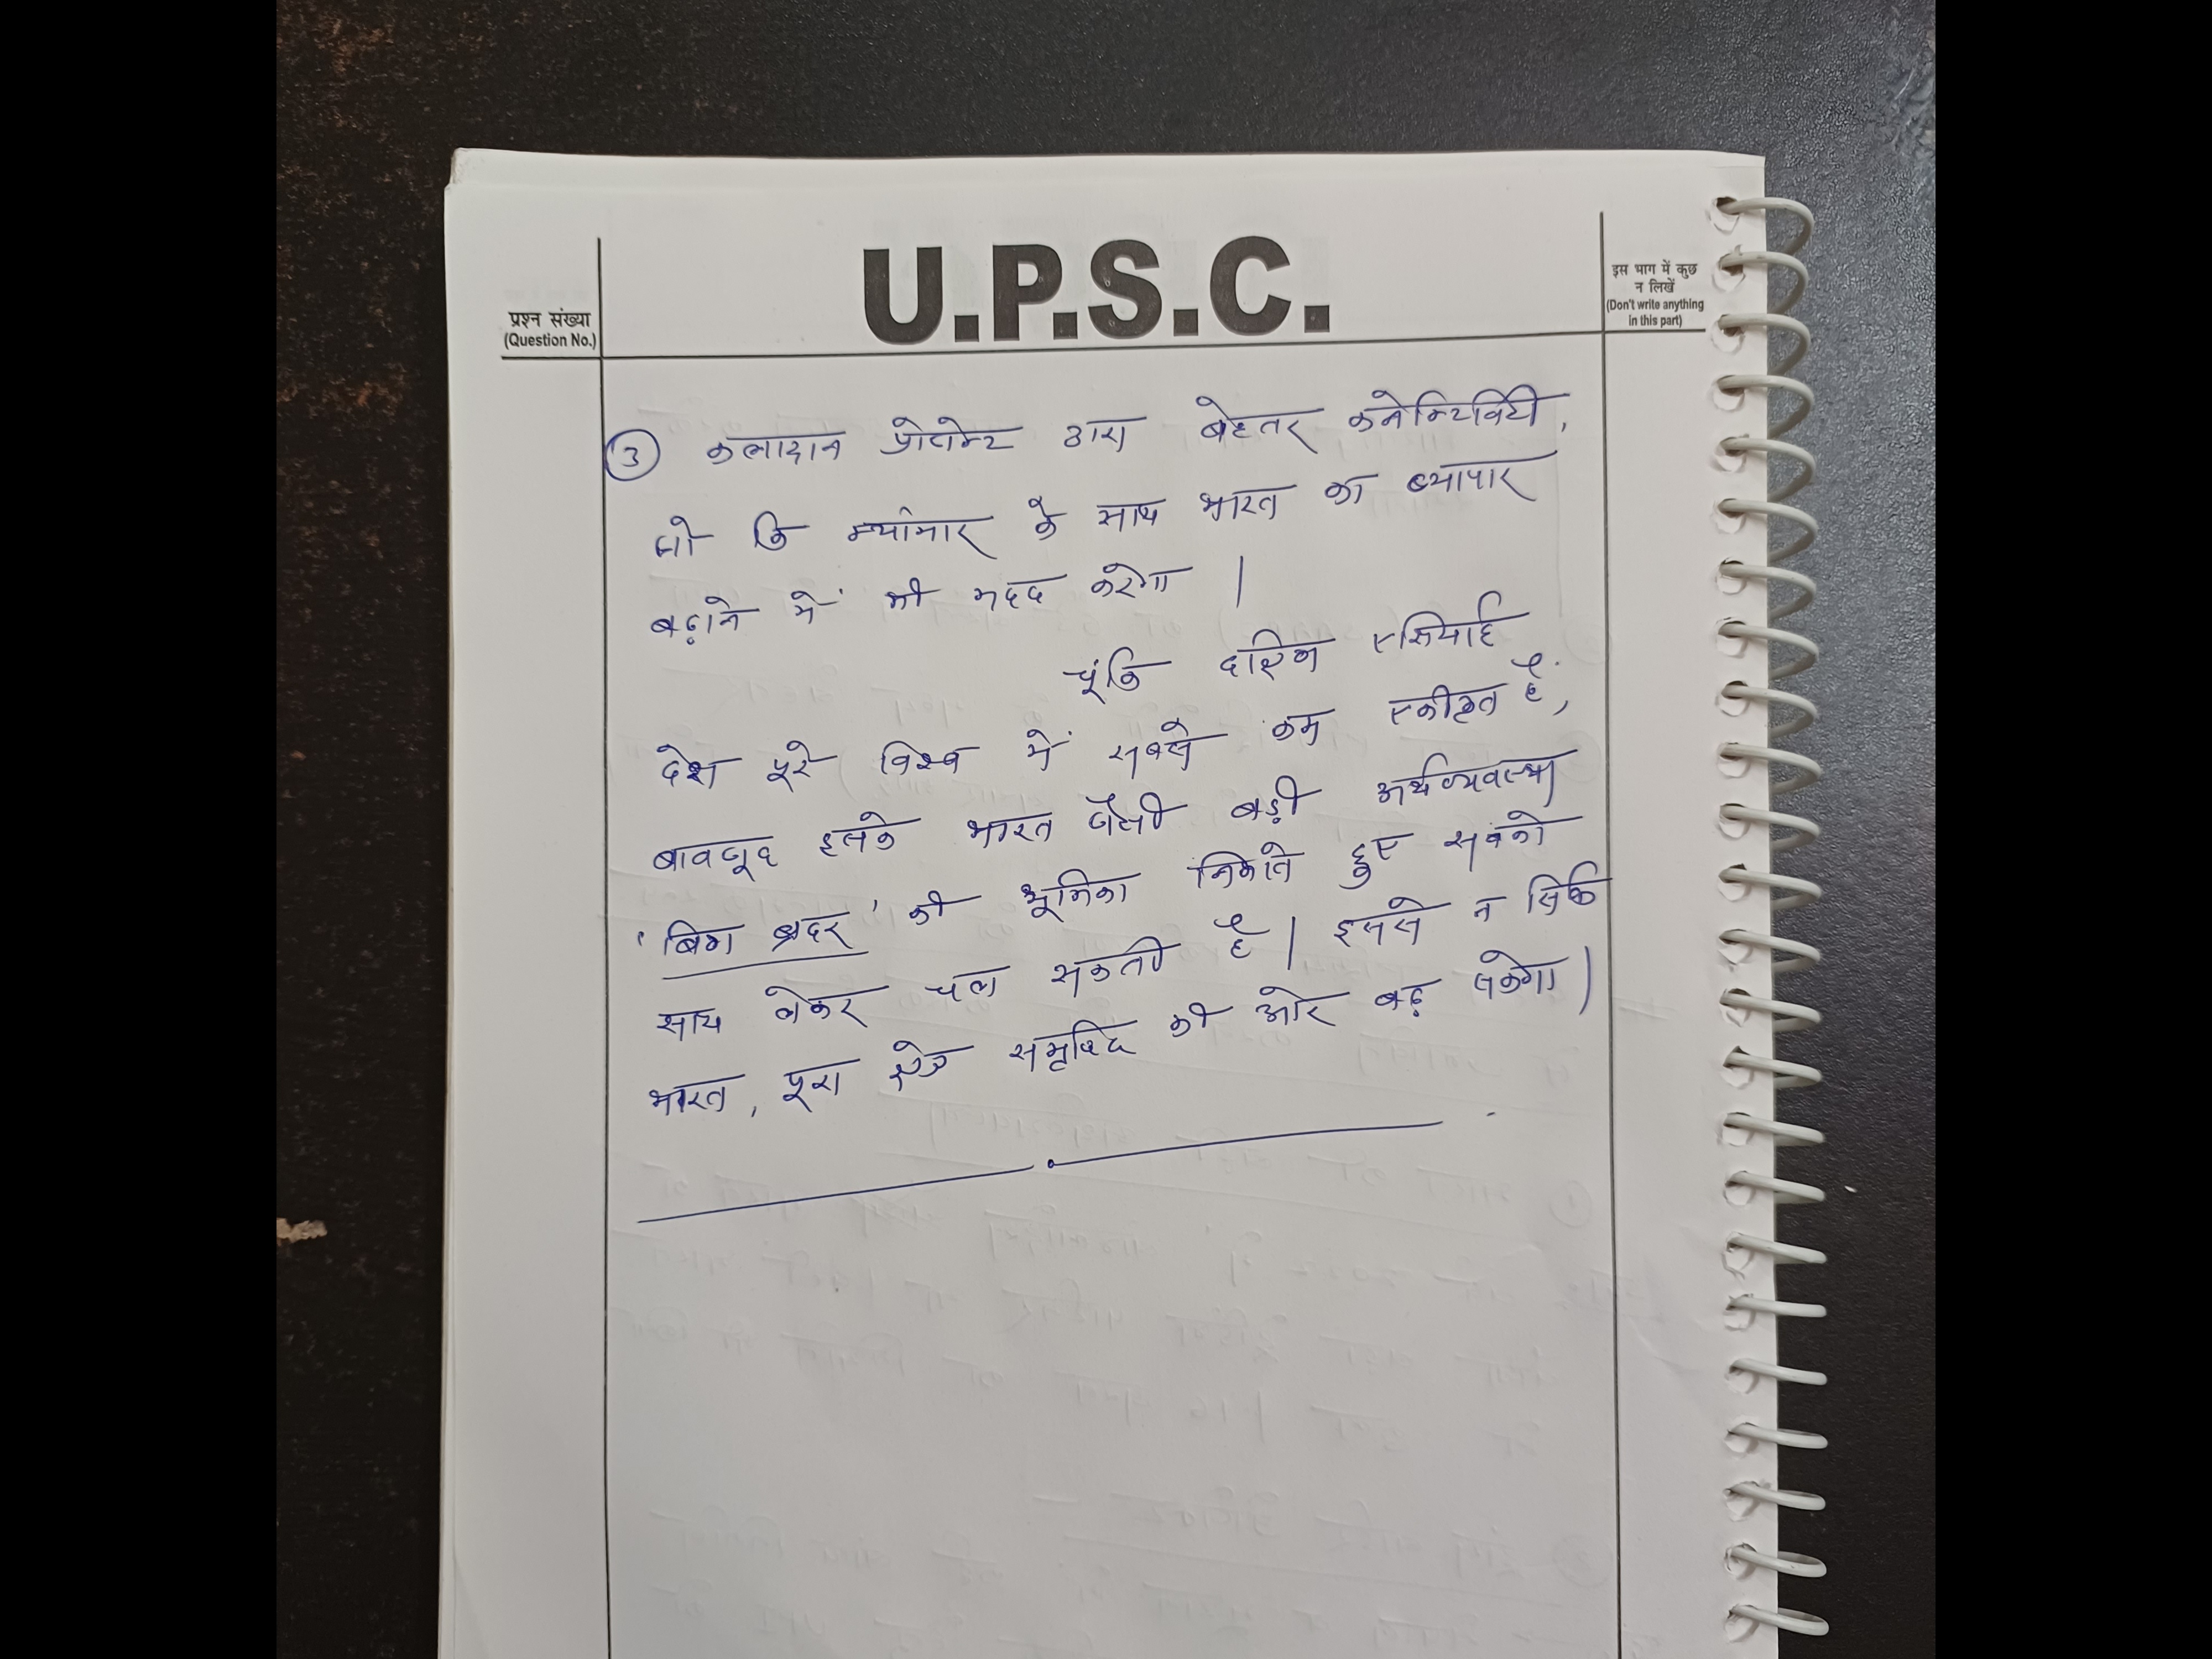 U.P.S.C.
प्रश्न संख्या
(Question No.)
इस भाग में कुछ
न लिखें
(Don't write anything
in this part)
③ कलादान प्रोजेक्ट द्वारा बेहतर कनेक्टिविटी,
जो कि म्यांमार के साथ भारत का व्यापार
बढ़ाने में भी मदद करेगा |
चूंकि दक्षिण एशियाई
देश पूरे विश्व में सबसे कम एकीकृत है,
बावजूद इसके भारत जैसी बड़ी अर्थव्यवस्था
'बिग ब्रदर' की भूमिका निभाते हुए सबको
साथ लेकर चल सकती है | इससे न सिर्फ
भारत, पूरा क्षेत्र समृद्धि की ओर बढ़ सकेगा |